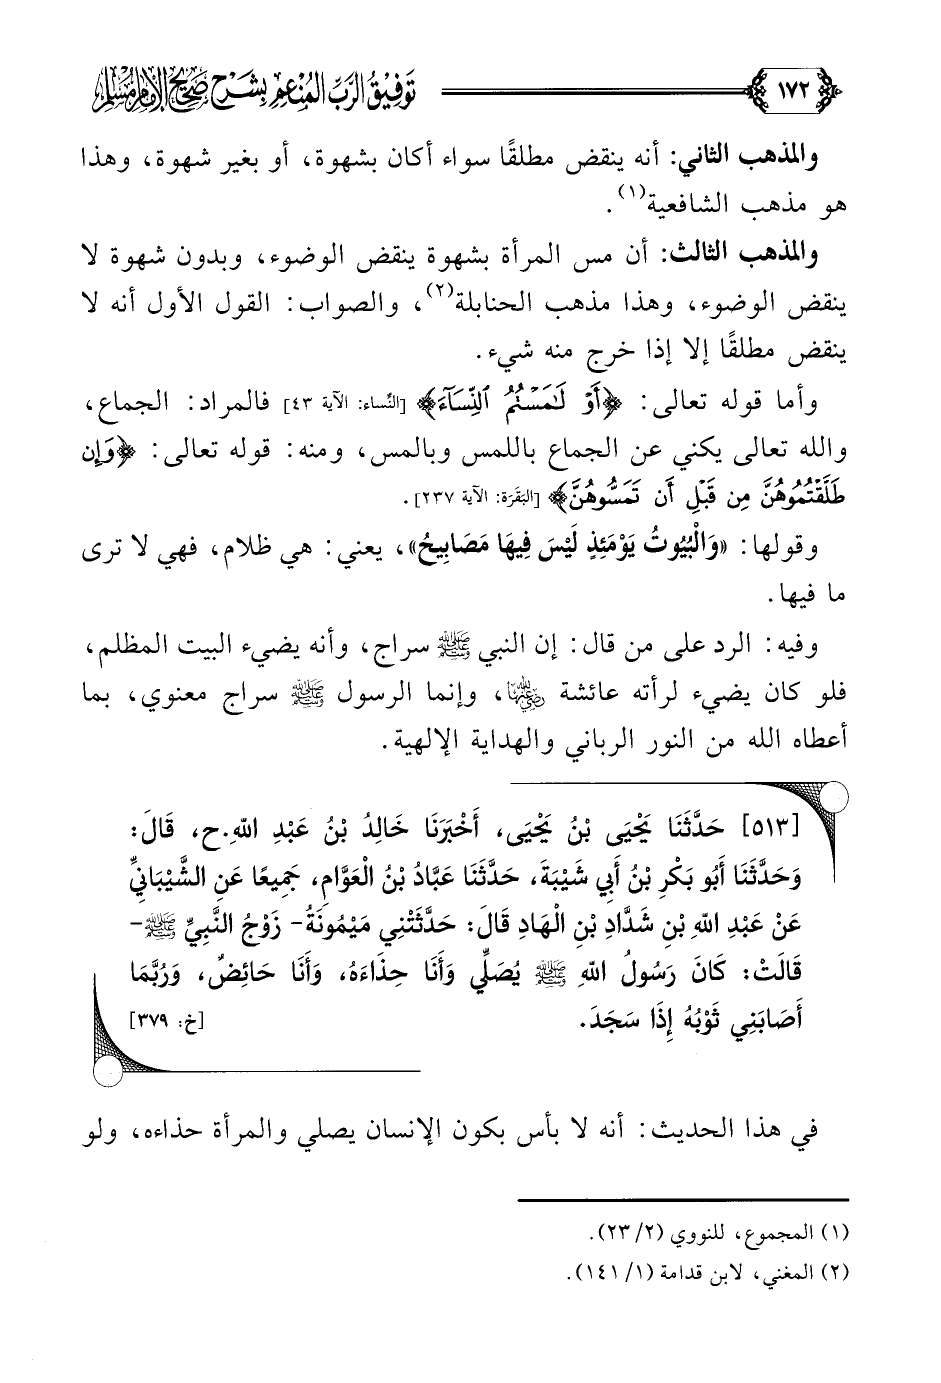 ١٧٢
توفيق الرب المنعم بشرح صحيح الإمام مسلم
والمذهب الثاني: أنه ينقض مطلقًا سواء أكان بشهوة، أو بغير شهوة، وهذا
هو مذهب الشافعية(١).
والمذهب الثالث: أن مس المرأة بشهوة ينقض الوضوء، وبدون شهوة لا
ينقض الوضوء، وهذا مذهب الحنابلة(٢)، والصواب: القول الأول أنه لا
ينقض مطلقًا إلا إذا خرج منه شيء.
وأما قوله تعالى: ﴿أَوْ لَٰمَسْتُمُ ٱلنِّسَآءَ﴾ [النِّساء: الآية ٤٣] فالمراد: الجماع،
والله تعالى يكني عن الجماع باللمس وبالمس، ومنه: قوله تعالى: ﴿وَإِن
طَلَّقْتُمُوهُنَّ مِن قَبْلِ أَن تَمَسُّوهُنَّ﴾ [البَقَرَة: الآية ٢٣٧].
وقولها: «وَالْبُيُوتُ يَوْمَئِذٍ لَيْسَ فِيهَا مَصَابِيحُ»، يعني: هي ظلام، فهي لا ترى
ما فيها.
وفيه: الرد على من قال: إن النبي ﷺ سراج، وأنه يضيء البيت المظلم،
فلو كان يضيء لرأته عائشة رضي الله عنها، وإنما الرسول ﷺ سراج معنوي، بما
أعطاه الله من النور الرباني والهداية الإلهية.
[٥١٣] حَدَّثَنَا يَحْيَى بْنُ يَحْيَى، أَخْبَرَنَا خَالِدُ بْنُ عَبْدِ اللهِ.ح، قَالَ:
وَحَدَّثَنَا أَبُو بَكْرِ بْنُ أَبِي شَيْبَةَ، حَدَّثَنَا عَبَّادُ بْنُ الْعَوَّامِ، جَمِيعًا عَنِ الشَّيْبَانِيِّ
عَنْ عَبْدِ اللهِ بْنِ شَدَّادِ بْنِ الْهَادِ قَالَ: حَدَّثَتْنِي مَيْمُونَةُ- زَوْجُ النَّبِيِّ ﷺ-
قَالَتْ: كَانَ رَسُولُ اللهِ ﷺ يُصَلِّي وَأَنَا حِذَاءَهُ، وَأَنَا حَائِضٌ، وَرُبَّمَا
أَصَابَنِي ثَوْبُهُ إِذَا سَجَدَ. [خ: ٣٧٩]
في هذا الحديث: أنه لا بأس بكون الإنسان يصلي والمرأة حذاءه، ولو
(١) المجموع، للنووي (٢/ ٢٣).
(٢) المغني، لابن قدامة (١/ ١٤١).